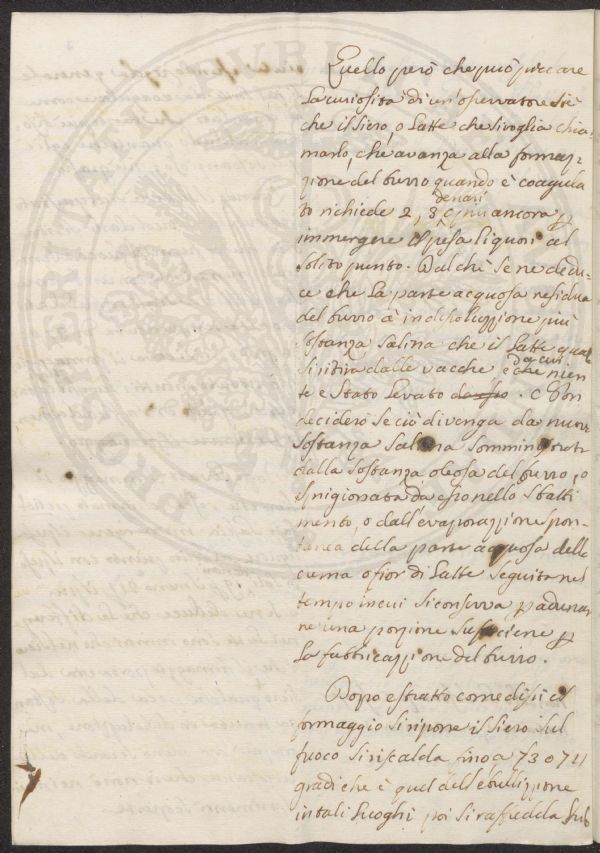 Quello però che può piccare
la curiosità di un'osservatore si è
che il siero, o latte che si voglia chia-
marlo, che avanza alla formaz-
zione del burro quando è coagula
to richiede 2, 3 denari ancora p
immergere il pesa liquori al
solito punto. Dal chè se ne dedu-
ce che la parte acquosa residua
del burro à in dissoluzzione più
sostanza salina che il latte qual
si ritira dalle vacche e da cui nien
te e stato levato. Non
decidero se ciò divenga da nuova
sostanza salina somministrata
dalla sostanza oleosa del burro, o
sprigionata da esso nello sbatti
mento, o dall'evaporazzione spon-
tanea della parte acquosa della
cuma o fior di latte seguita nel
tempo in cui si conserva p adunar
ne una porzione sufficiene p
la fabbricazzione del burro.
Dopo estratto come dissi il
formaggio si ripone il siero sul
fuoco si riscalda fino a 73 o 74
gradi che è quel dell'ebullizzione
in tali luoghi poi si raffredda sub